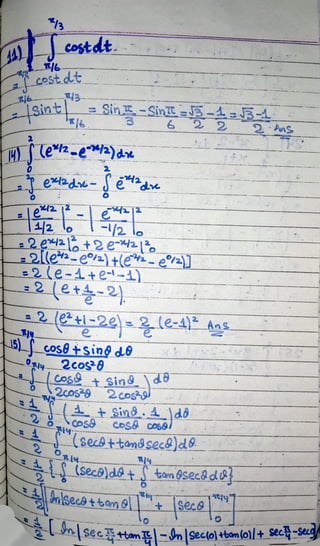 11) ∫_{π/6}^{π/3} cost dt.
= ∫_{π/6}^{π/3} cost dt
= |Sint|_{π/6}^{π/3} = Sin π/3 - Sin π/6 = √3/2 - 1/2 = (√3-1)/2 Ans
14) ∫_0^2 (e^{x/2} - e^{-x/2}) dx
= ∫_0^2 e^{x/2} dx - ∫_0^2 e^{-x/2} dx
= |e^{x/2}/(1/2)|_0^2 - |e^{-x/2}/(-1/2)|_0^2
= 2 e^{x/2}|_0^2 + 2 e^{-x/2}|_0^2
= 2[(e^{2/2} - e^{0/2}) + (e^{-2/2} - e^{0/2})]
= 2 (e - 1 + e^{-1} - 1)
= 2 (e + 1/e - 2)
= 2 ((e²+1-2e)/e) = 2/e (e-1)² Ans
15) ∫_0^{π/4} (cosθ + sinθ)/(2cos²θ) dθ
= ∫_0^{π/4} (cosθ/(2cos²θ) + sinθ/(2cos²θ)) dθ
= 1/2 ∫_0^{π/4} (1/cosθ + sinθ/cosθ . 1/cosθ) dθ
= 1/2 ∫_0^{π/4} (secθ + tanθ secθ) dθ
= 1/2 {∫_0^{π/4} (secθ) dθ + ∫_0^{π/4} tanθ secθ dθ}
= 1/2 [|ln|secθ + tanθ||_0^{π/4} + |secθ|_0^{π/4}]
= 1/2 [ln|sec π/4 + tan π/4| - ln|sec(0) + tan(0)| + sec π/4 - sec0